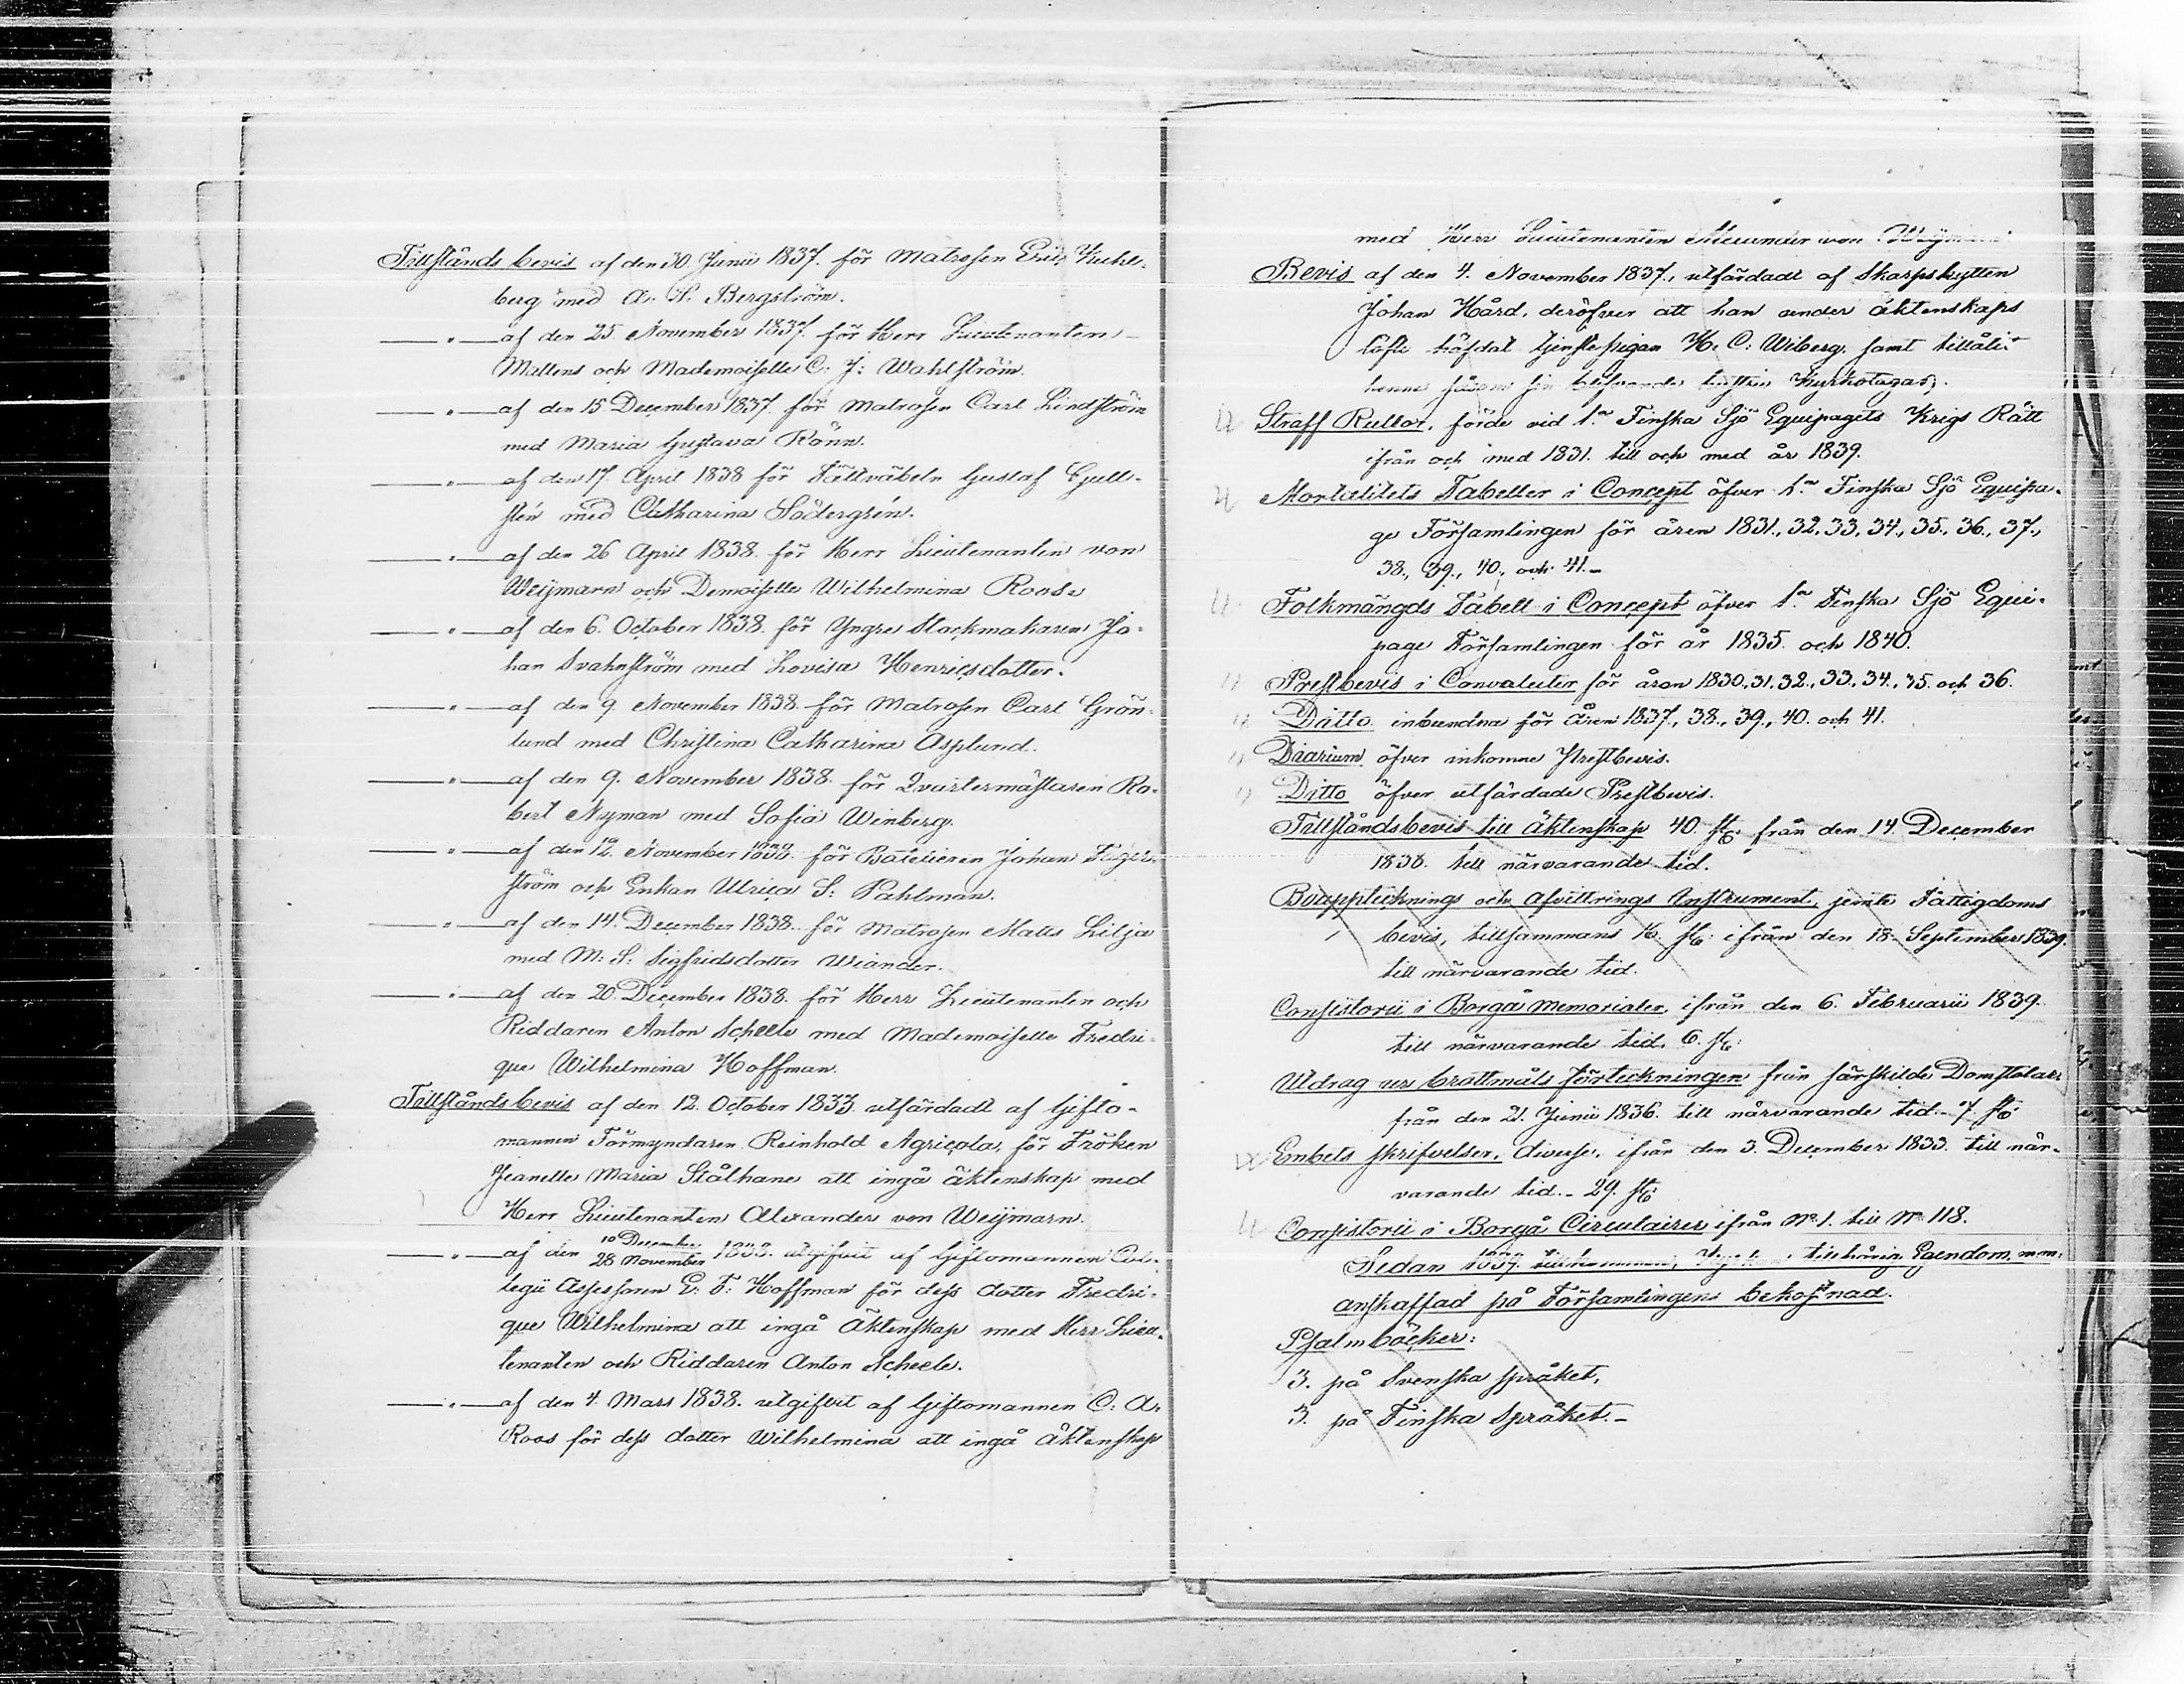 Tillstånds bevis af den 30 Junii 1837. för Matrosen Eric Kuhl-
berg med A. S. Bergström.
—"— af den 25 November 1837 för Herr Lieutenanten
Mattens och Mademoiselle C. J: Wahlström.
—"— af den 15 December 1837 för Matrosen Carl Lindström
med Maria Gustava Rönn.
—"— af den 17. April 1838 för Fältväbeln Gustaf Gyll-
stén med Catharina Södergrén.
—"— af den 26 April 1838. för Herr Lieutenanten von
Weijmarn och Demoiselle Wilhelmina Roos
—"— af den 6. October 1838. för Yngre Blockmakaren Jo-
han Svahnström med Lovisa Henricsdotter.
—"— af den 9 November 1838 för Matrosen Carl Grön-
lund med Christina Catharina Asplund.
—"— af den 9. November 1838. för Qvartermästaren Ro-
bert Nyman med Sofia Winberg.
—"— af den 12. November 1838. för Batelieren Johan
ström och Enkan Ulrica S: Pahlman.
—"— af den 14. December 1838. för Matrosen Matts Lilja
med M: S: Sigfridsdotter Wiander.
—"— af den 20. December 1838. för Herr Lieutenanten och
Riddaren Anton Scheele med Mademoiselle Fredri-
que Wilhelmina Hoffman.
Tillståndsbevis af den 12. October 1833. utfärdadt af Gifto-
mannen Förmyndaren Reinhold Agricola, för Fröken
Jeanette Maria Stålhane att ingå äktenskap med
Herr Lieutenanten Alexander von Weijmarn.
—"— af den 10 December
28 November 1838. utgifvit af Giftomannen Col-
legii Assessoren E. F. Hoffman för dess dotter Fredri-
que Wilhelmina att ingå Äktenskap med Herr Lieu-
tenanten och Riddaren Anton Scheele.
—"— af den 4. Mars 1838. utgifvit af Giftomannen C. A.
Roos för dess dotter Wilhelmina att ingå äktenskap
med Herr Lieutenanten Alexander von Weijmarn
Bevis af den 4. November 1837., utfärdadt af Skarpskytten
Johan Hård, deröfver att han under äktenskaps
löfte häfdat tjenstepigan H. C: Wiberg, samt tillåtit
henne såsom sin blifvande hustru Kyrkotagas.
Straff Rullor, förde vid 1:a Finska Sjö Equipagets Krigs Rätt
ifrån och med 1831. till och med år 1839.
Mortalitets Tabeller i Concept öfver 1:a Finska Sjö Equipa-
ge Församlingen för åren 1831., 32., 33., 34., 35., 36., 37.,
38., 39., 40., och 41.-
Folkmängds Tabell i Concept öfver 1:a Finska Sjö Equi-
page Församlingen för år 1835. och 1840.
Prestbevis i Convoluter för åren 1830., 31. 32., 33., 34., 35. och 36.
Ditto inbundna för åren 1837., 38., 39., 40. och 41.
Diarium öfver inkomne Prestbevis.
Ditto öfver utfärdade Prestbevis.
Tillståndsbevis till äktenskap 40. st: från den 14. December
1838. till närvarande tid.
Bouppteknings och Afvittrings Instrument, jemte Fattigdoms
bevis, tillsammans 16. st: ifrån den 18. September 1839.
till närvarande tid.
Consistorii i Borgå Memorialer, ifrån den 6. Februarii 1839.
till närvarande tid. 6. st:
Utdrag ur brottmåls förteckningen från särskilde Domstolar
från den 21. Junii 1836. till närvarande tid.- 7 st:
Embets skrifvelser, diverse, ifrån den 3. December 1833. till när-
varande tid.- 29. st:
Consistorii i Borgå Circulairer ifrån No 1. till No 118.
Sedan 1839. tillhörig Egendom, m.m.
anskaffad på Församlingens bekostnad.
Psalmböcker:
3. på Svenska språket,
3. på Finska Språket.-